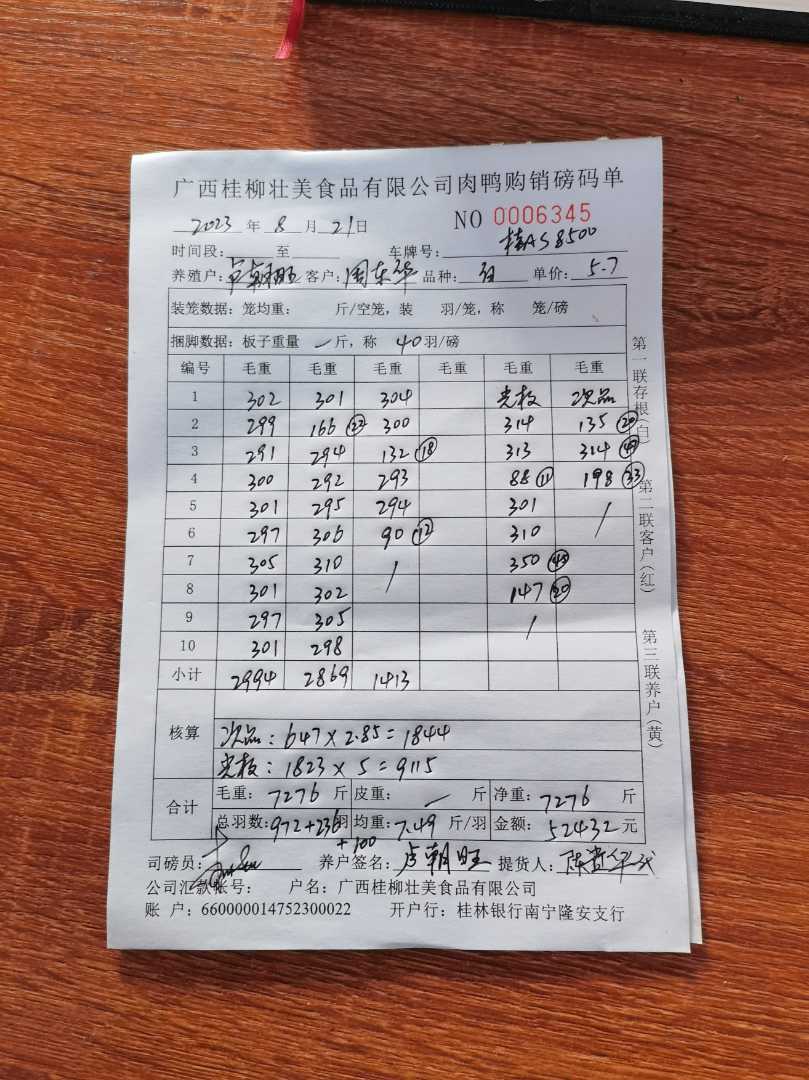 广西桂柳壮美食品有限公司肉鸭购销磅码单
2023 年 8 月 21 日 NO 0006345
时间段: 至 车牌号: 桂AS8500
养殖户: 卢朝旺 客户: 周东华 品种: 白 单价: 5.7
装笼数据: 笼均重: 斤/空笼, 装 羽/笼, 称 笼/磅
捆脚数据: 板子重量 一 斤, 称 40 羽/磅
编号 毛重 毛重 毛重 毛重 毛重 毛重
1 302 301 304 次品
2 299 166 (22) 300 314 135 (20)
3 291 294 132 (18) 313 314 (49)
4 300 292 293 88 (11) 198 (33)
5 301 295 294 301 /
6 297 306 90 (12) 310
7 305 310 / 350 (45)
8 301 302 147 (20)
9 297 305 /
10 301 298
小计 2994 2869 1413
核算
次品: 647 × 2.85 = 1844
: 1823 × 5 = 9115
合计
毛重: 7276 斤 皮重: 一 斤 净重: 7276 斤
总羽数: 972+236羽 均重: 7.49 斤/羽 金额: 52432 元
+100
司磅员: 养户签名: 卢朝旺 提货人:
公司汇款帐号: 户名: 广西桂柳壮美食品有限公司
账 户: 660000014752300022 开户行: 桂林银行南宁隆安支行
第一联存根(白)
第二联客户(红)
第三联养户(黄)